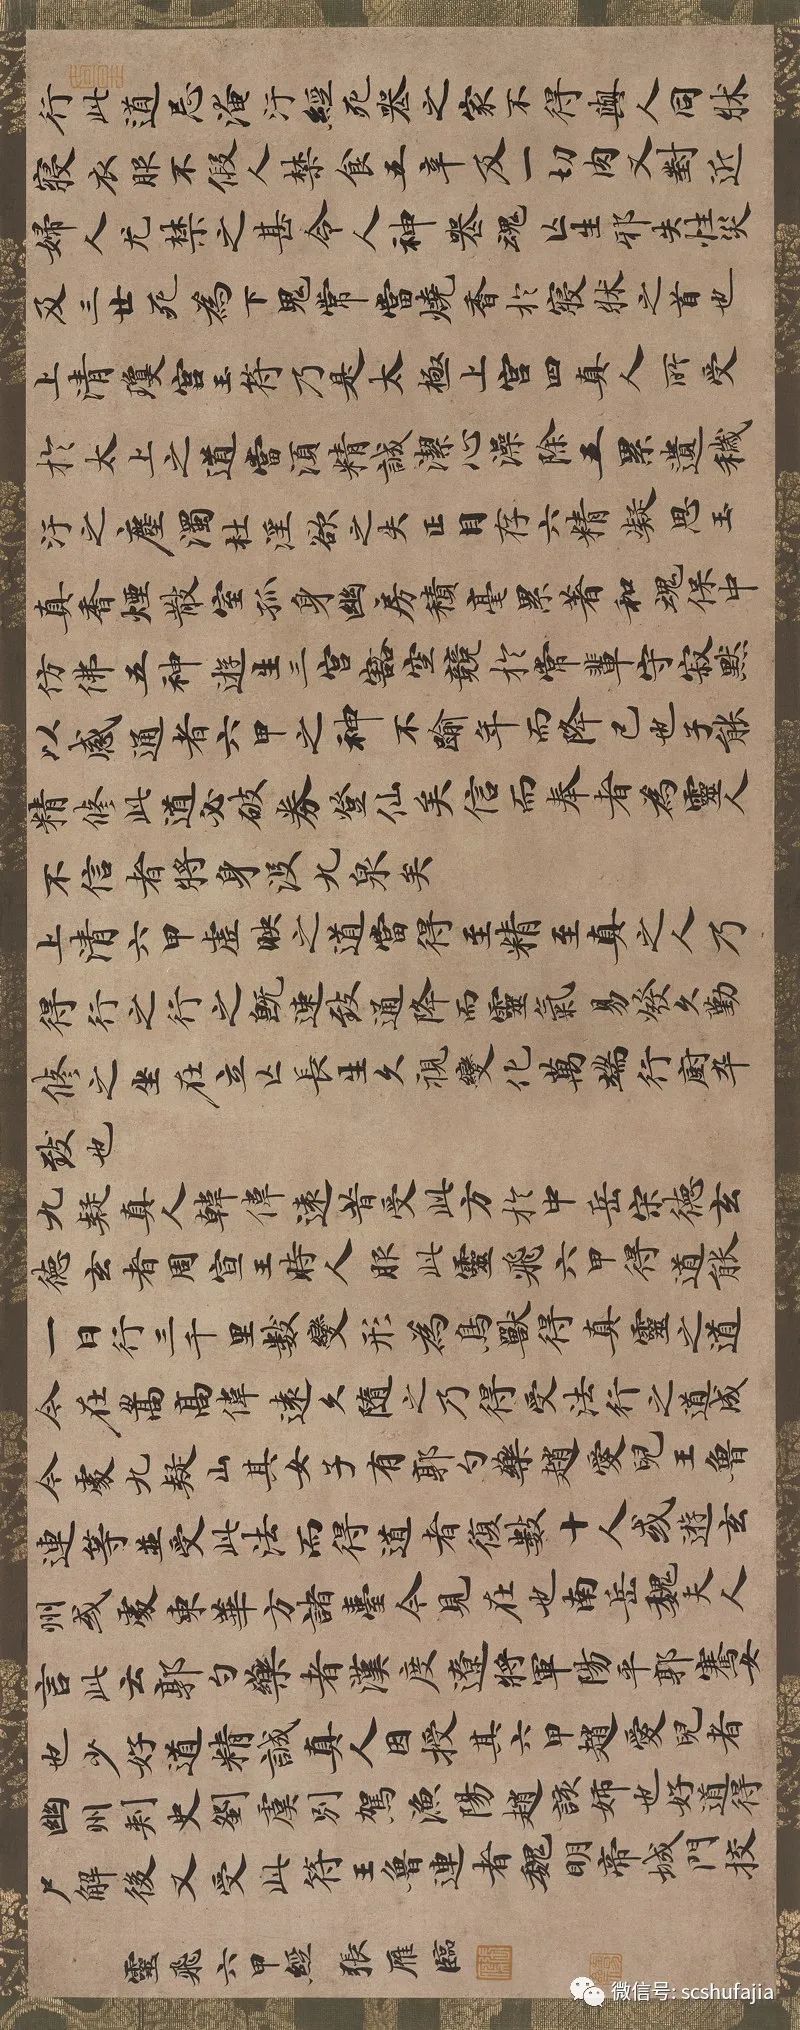 行此道忌淹汙經死喪之家不得與人同牀
寢衣服不假人禁食五辛及一切肉又對近
婦人尤禁之甚令人神喪魂亡生邪失性災
及三世死為下鬼常當燒香於寢牀之首也
上清瓊宮玉符乃是太極上宮四真人所受
於太上之道當須精誠潔心澡除五累遺穢
汙之塵濁杜淫欲之失正目存六精凝思玉
真香煙散室孤身幽房積毫累著和魂保中
仿佛五神遊生三宮豁空競於常輩守寂默
以感通者六甲之神不踰年而降已也子能
精修此道必破券登仙矣信而奉者為靈人
不信者將身沒九泉矣
上清六甲虛映之道當得至精至真之人乃
得行之行之既速致通降而靈氣易發久勤
修之坐在立亡長生久視變化萬端行廚卒
致也
九疑真人韓偉遠昔受此方於中岳宋德玄
德玄者周宣王時人服此靈飛六甲得道能
一日行三千里數變形為鳥獸得真靈之道
今在嵩高偉遠久隨之乃得受法行之道成
今處九疑山其女子有郭勺藥趙愛兒王魯
連等並受此法而得道者復數十人或遊玄
州或處東華方諸臺今見在也南岳魏夫人
言此云郭勺藥者漢度遼將軍陽平郭騫女
也少好道精誠真人因授其六甲趙愛兒者
幽州刺史劉虞別駕漁陽趙該姊也好道得
尸解後又受此符王魯連者魏明帝城門校
靈飛六甲經 張雁臨
微信号: scshufajia